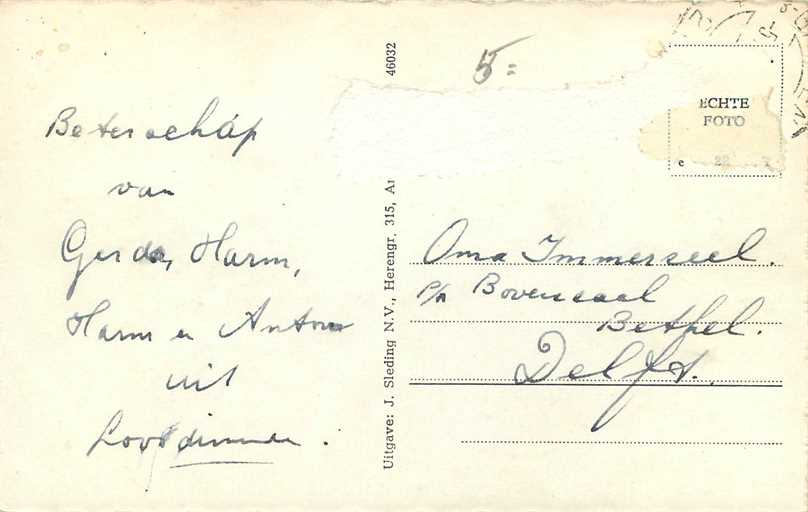 46032
5=
ECHTE
FOTO
Beterschap
van
Gerda, Harm,
Harm en Anton
uit
Uitgave: J. Sleding N.V., Herengr. 315, A
Oma Immerseel.
p/a Bovenzaal
Bethel.
Delft.